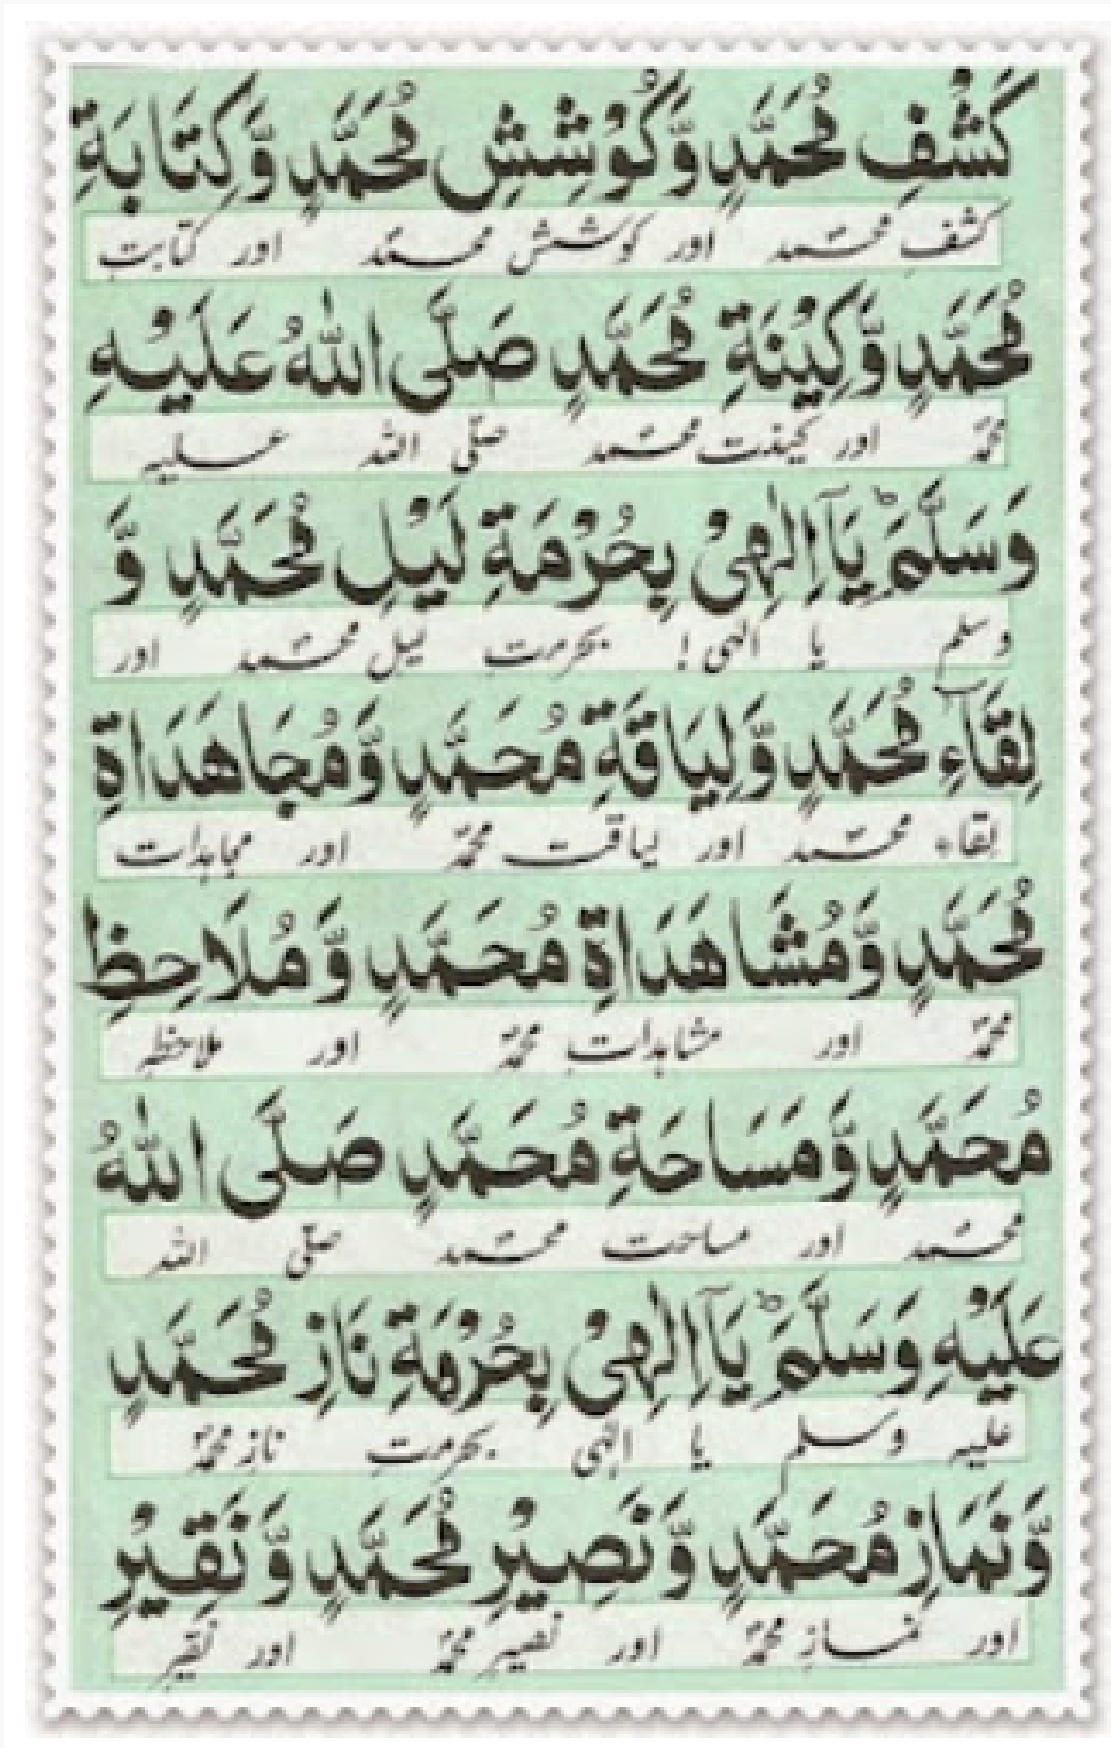 كَشْفِ مُحَمَّدٍ وَّكُوْشِشِ مُحَمَّدٍ وَّكِتَابَةِ
کشف محمد اور کوشش محمد اور کتابت
مُحَمَّدٍ وَّكِيْنَةِ مُحَمَّدٍ صَلَّى اللّٰهُ عَلَيْهِ
محمدؐ اور کینت محمد صلّی اللہ علیہ
وَسَلَّمَ ؕ يَآ اِلٰهِيْ بِحُرْمَةِ لَيْلِ مُحَمَّدٍ وَّ
وسلم یا الٰہی ! بحرمت لیل محمد اور
لِقَآءِ مُحَمَّدٍ وَّلِيَاقَةِ مُحَمَّدٍ وَّمُجَاهَدَاةِ
لقاء محمد اور لیاقت محمدؐ اور مجاہدات
مُحَمَّدٍ وَّمُشَاهَدَاةِ مُحَمَّدٍ وَّمُلَاحِظِ
محمدؐ اور مشاہدات محمدؐ اور ملاحظہ
مُحَمَّدٍ وَّمَسَاحَةِ مُحَمَّدٍ صَلَّى اللّٰهُ
محمد اور مساحت محمد صلّی اللہ
عَلَيْهِ وَسَلَّمَ ؕ يَآ اِلٰهِيْ بِحُرْمَةِ نَازِ مُحَمَّدٍ
علیہ وسلم یا الٰہی بحرمت نازِ محمدؐ
وَّنَمَازِ مُحَمَّدٍ وَّنَصِيْرِ مُحَمَّدٍ وَّنَقِيْرِ
اور نمازِ محمدؐ اور نصیر محمدؐ اور نقیر